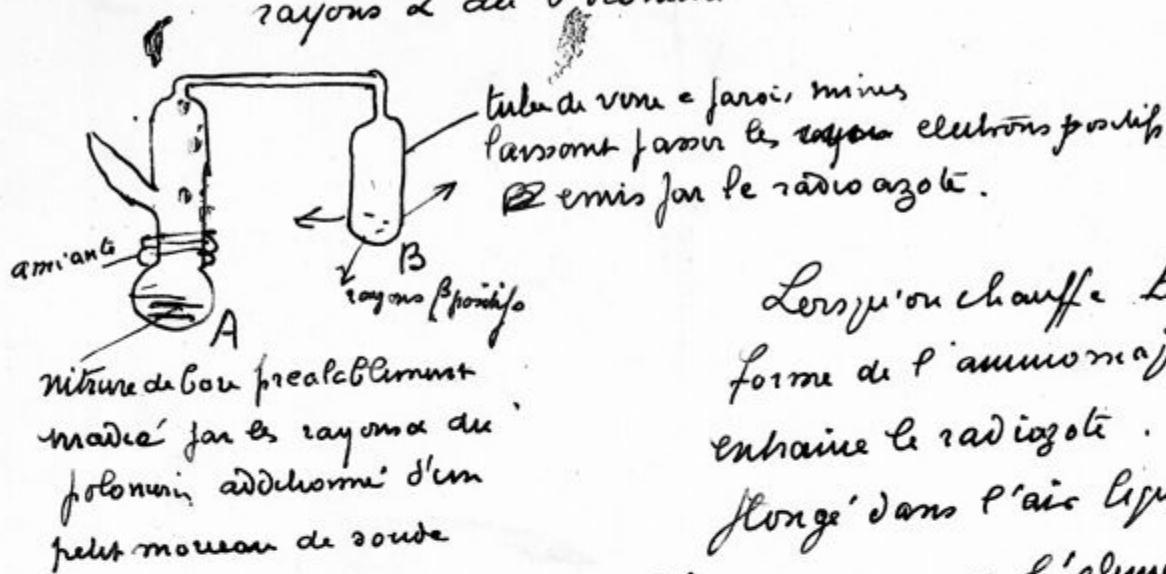 rayons α du
tube de verre a parois minces
laissant passer les rayons electrons positifs
emis par le radio azote.
amiante
B
rayons β positifs
A
nitrure de bore prealablement
irradié par les rayons α du
polonium additionné d'un
petit morceau de soude
Lorsqu'on chauffe
forme de l'ammoniaq
entraine le radiazote.
plongé dans l'air liqu